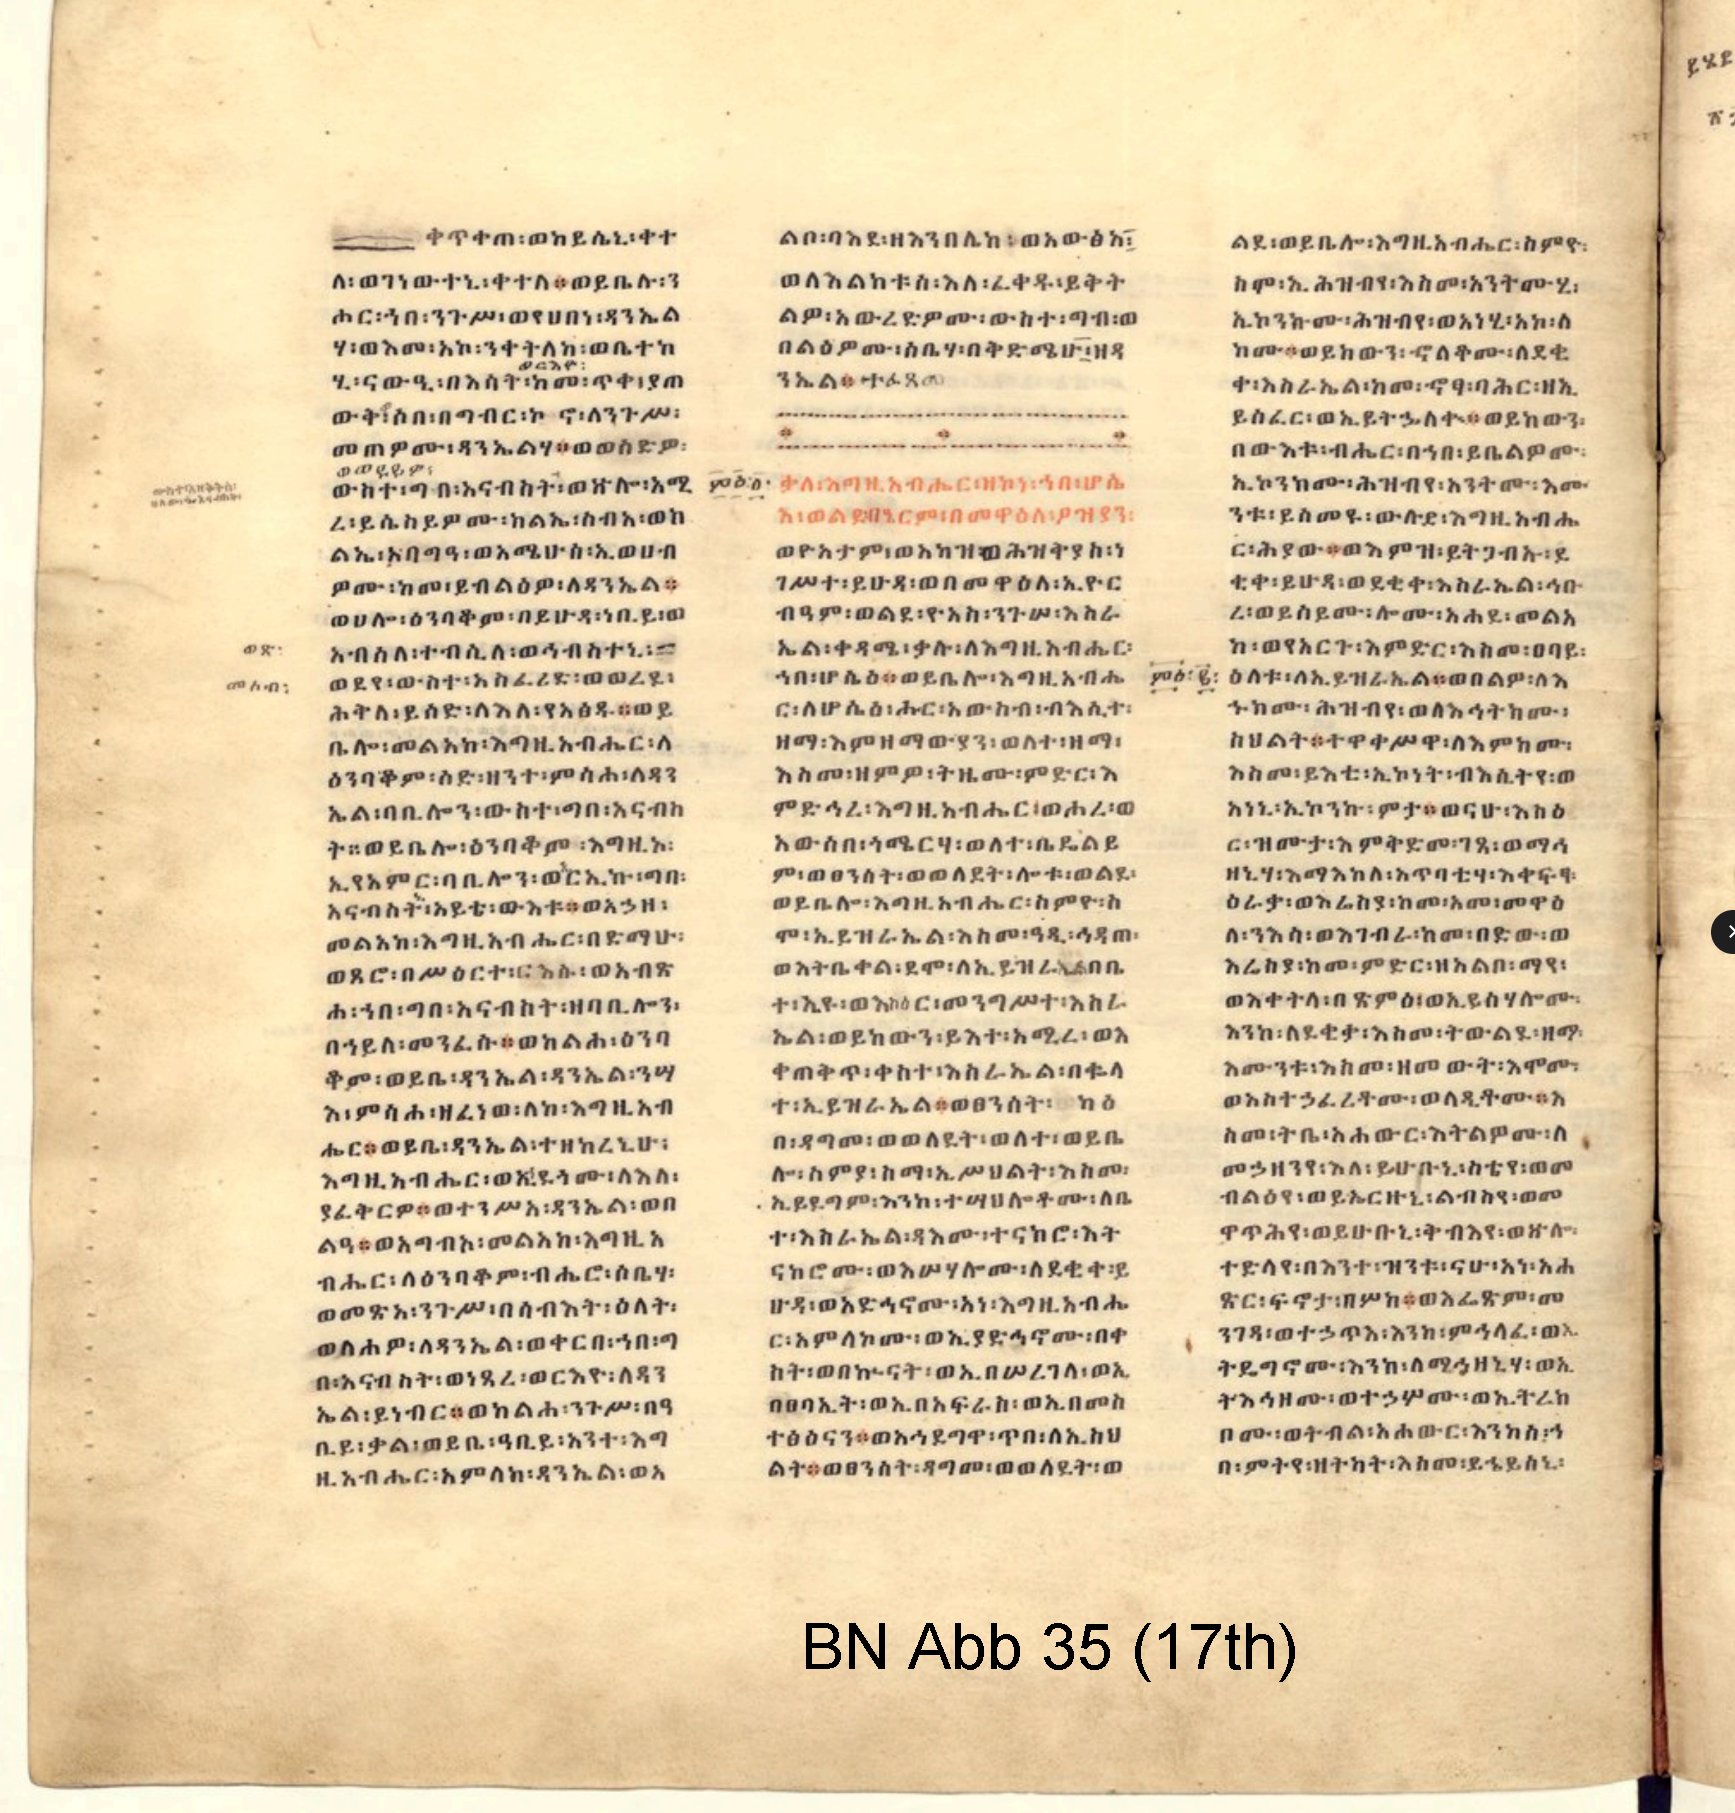 ቀጥቀጠ፡ወከይሲኒ፡ቀተ
ለ፡ወገነውተኒ፡ቀተለ።ወይቤሉ፡ን
ሑር፡ኀበ፡ንጉሥ፡ወየሀበነ፡ዳንኤል
ሃ፡ወእመ፡አኮ፡ንቀትለከ፡ወቤተከ
ወርእዮ፡
ሂ፡ናውዒ፡በእሳት፡ከመ፡ጥቀ፡ያጠ
ውቅ፡ሰብ፡በግብር፡ኮ ኖ፡ለንጉሥ፡
መጠዎሙ፡ዳንኤልሃ።ወወሰድዎ፡
ወወደይዎ፡
ውስተ፡ግበ፡አናብስት፡ወጽሎ፡አሚ
ረ፡ይሴስይዎሙ፡ክልኤ፡ሰብአ፡ወክ
ልኤ፡አባግዓ፡ወአሜሁሰ፡ኢወሀብ
ዎሙ፡ከመ፡ይብልዕዎ፡ለዳንኤል።
ወሀሎ፡ዕንባቆም፡በይሁዳ፡ነቢይ፡ወ
ወጽ፡
አብሰለ፡ተብሲለ፡ወኅብስተኒ፡
መሶብ፡
ወደየ፡ውስተ፡አስፈሬድ፡ወወረደ፡
ሕትለ፡ይሰድ፡ለእለ፡የአፅዱ።ወይ
ቤሎ፡መልአከ፡እግዚአብሔር፡ለ
ዕንባቆም፡ስድ፡ዘንተ፡ምሳሐ፡ለዳን
ኤል፡ባቢሎን፡ውስተ፡ግበ፡አናብስ
ት።ወይቤሎ፡ዕንባቆም፡እግዚእ፡
ኢየአምር፡ባቢሎን፡ወርኢኩ፡ግበ፡
አናብስት፡አይቴ፡ውእቱ።ወአኃዘ፡
መልአከ፡እግዚአብሔር፡በድማሁ፡
ወጾሮ፡በሥዕርተ፡ርእሱ፡ወአብጽ
ሐ፡ኀበ፡ግበ፡አናብስት፡ዘባቢሎን፡
በኀይለ፡መንፈሱ።ወከልሐ፡ዕንባ
ቆም፡ወይቤ፡ዳንኤል፡ዳንኤል፡ንሣ
እ፡ምሳሐ፡ዘፈነወ፡ለከ፡እግዚአብ
ሔር።ወይቤ፡ዳንኤል፡ተዘከረኒሁ፡
እግዚአብሔር፡ወኢይኀድጎሙ፡ለእለ፡
ያፈቅርዎ።ወተንሥአ፡ዳንኤል፡ወበ
ልዓ።ወአግብአ፡መልአከ፡እግዚአ
ብሔር፡ለዕንባቆም፡ብሔሮ፡ሰቤሃ፡
ወመጽአ፡ንጉሥ፡በሰብእት፡ዕለት፡
ወለሐዎ፡ለዳንኤል፡ወቀርበ፡ኀበ፡ግ
በ፡አናብስት፡ወነጸረ፡ወርእዮ፡ለዳን
ኤል፡ይነብር።ወከልሐ፡ንጉሥ፡በዓ
ቢይ፡ቃል፡ወይቤ፡ዓቢይ፡አንተ፡እግ
ዚአብሔር፡አምላከ፡ዳንኤል፡ወአ
ልቦ፡ባእደ፡ዘእንበሌከ፡ወአውፅአ፡
ወለእልክቱሰ፡እለ፡ፈቀዱ፡ይቅት
ልዎ፡አውረድዎሙ፡ውስተ፡ግብ፡ወ
በልዕዎሙ፡ሰቤሃ፡በቅድሜሁ፡ዘዳ
ንኤል።ተፈጸመ
ቃለ፡እግዚአብሔር፡ዘኮነ፡ኀበ፡ሆሴ
እ፡ወልደ፡ብኤርም፡በመዋዕለ፡ዖዝያን፡
ወዮአታም፡ወአካዝ፡ወሕዝቅያስ፡ነ
ገሥተ፡ይሁዳ፡ወበመዋዕለ፡ኢዮር
ብዓም፡ወልደ፡ዮአስ፡ንጉሠ፡እስራ
ኤል፡ቀዳሜ፡ቃሉ፡ለእግዚአብሔር፡
ኀበ፡ሆሴዕ።ወይቤሎ፡እግዚአብሔ
ር፡ለሆሴዕ፡ሑር፡አውስብ፡ብእሲተ፡
ዘማ፡እምዘማውያን፡ወለተ፡ዘማ፡
እስመ፡ዘምዎ፡ትዜሙ፡ምድር፡እ
ምድኅረ፡እግዚአብሔር፡ወሐረ፡ወ
አውሰበ፡ጎሜርሃ፡ወለተ፡ቤዴልይ
ም፡ወፀንሰት፡ወወለደት፡ሎቱ፡ወልደ፡
ወይቤሎ፡እግዚአብሔር፡ስምዮ፡ስ
ሞ፡ኢይዝራኤል፡እስመ፡ዓዲ፡ኅዳጠ፡
ወእትቤቀል፡ደሞ፡ለኢይዝራኤል፡በቤ
ተ፡ኢዩ፡ወእስዕር፡መንግሥተ፡እስራ
ኤል፡ወይከውን፡ይእተ፡አሚረ፡ወእ
ቀጠቅጥ፡ቀስተ፡እስራኤል፡በቈላ
ተ፡ኢይዝራኤል።ወፀንሰት፡ ካዕ
በ፡ዳግመ፡ወወለደት፡ወለተ፡ወይቤ
ሎ፡ስምያ፡ስማ፡ኢሥህልት፡እስመ፡
ኢይደግም፡እንከ፡ተሣህሎቶሙ፡ለቤ
ተ፡እስራኤል፡ዳእሙ፡ተናክሮ፡እት
ናከሮሙ፡ወእሣሃሎሙ፡ለደቂቀ፡ይ
ሁዳ፡ወአድኅኖሙ፡አነ፡እግዚአብሔ
ር፡አምላኮሙ፡ወኢያድኅኖሙ፡በቀ
ስት፡ወበኲናት፡ወኢበሠረገላ፡ወኢ
በፀባኢት፡ወኢበአፍራስ፡ወኢበመስ
ተፅዕናን።ወአኅደግዋ፡ጥበ፡ለኢሥህ
ልት።ወፀንሰት፡ዳግመ፡ወወለደት፡ወ
ልደ፡ወይቤሎ፡እግዚአብሔር፡ስምዮ፡
ስሞ፡ኢሕዝብየ፡እስመ፡አንትሙሂ፡
ኢኮንክሙ፡ሕዝብየ፡ወአነሂ፡አከ፡ለ
ክሙ።ወይከውን፡ኆለቆሙ፡ለደቂ
ቀ፡እስራኤል፡ከመ፡ኆፃ፡ባሕር፡ዘኢ
ይሰፈር፡ወኢይትኃለቀ።ወይከውን፡
በውእቱ፡ብሔር፡በኀበ፡ይቤልዎሙ፡
ኢኮንክሙ፡ሕዝብየ፡አንትሙ፡እሙ
ንቱ፡ይሰመዩ፡ውሉደ፡እግዚአብሔ
ር፡ሕያው።ወእምዝ፡ይትጋብኡ፡ደ
ቂቀ፡ይሁዳ፡ወደቂቀ፡እስራኤል፡ኅቡ
ረ፡ወይሰይሙ፡ሎሙ፡አሐደ፡መልአ
ከ፡ወየአርጉ፡እምድር፡እስመ፡ዐባይ፡
ዕለቱ፡ለኢይዝራኤል።ወበልዎ፡ለእ
ኁክሙ፡ሕዝብየ፡ወለእኅትክሙ፡
ሥህልት።ተዋቀሥዋ፡ለእምክሙ፡
እስመ፡ይእቲ፡ኢኮነት፡ብእሲትየ፡ወ
አነኒ፡ኢኮንኩ፡ምታ።ወናሁ፡እስዕ
ር፡ዝሙታ፡እምቅድመ፡ገጻ፡ወማኅ
ዘኒሃ፡እማእከለ፡አጥባቲሃ፡እቀፍፃ፡
ዕራቃ፡ወእሬስያ፡ከመ፡አመ፡መዋዕ
ለ፡ንእሳ፡ወእገብራ፡ከመ፡በድው፡ወ
እሬስያ፡ከመ፡ምድር፡ዘአልቦ፡ማየ፡
ወእቀትላ፡በጽምዕ፡ወኢይሰሃሎሙ፡
እንከ፡ለደቂቃ፡እስመ፡ትውልደ፡ዘማ፡
እሙንቱ፡እስመ፡ዘመ ውት፡እሞሙ፡
ወአስተኃፈረቶሙ፡ወላዲቶሙ።እ
ስመ፡ትቤ፡አሐውር፡እትልዎሙ፡ለ
መኃዘንየ፡እለ፡ይሁቡኒ፡ስቴየ፡ወመ
ብልዕየ፡ወይኤርዙኒ፡ልብስየ፡ወመ
ዋጥሕየ፡ወይሁቡኒ፡ቅብእየ፡ወጽሎ፡
ተድላየ፡በእንተ፡ዝንቱ፡ናሁ፡አነ፡አሐ
ጽር፡ፍኖታ፡በሦክ።ወእፌጽም፡መ
ንገዳ፡ወተኃጥእ፡እንከ፡ምኅላፈ፡ወኢ
ትዴግኖሙ፡እንከ፡ለሚኃዘኒሃ፡ወኢ
ትእኅዘሙ፡ወተኃሥሙ፡ወኢትረክ
ቦሙ፡ወትብል፡አሐውር፡እንከሰ፡ኀ
በ፡ምትየ፡ዘትካት፡እስመ፡ይኄይሰኒ፡
BN Abb 35 (17th)